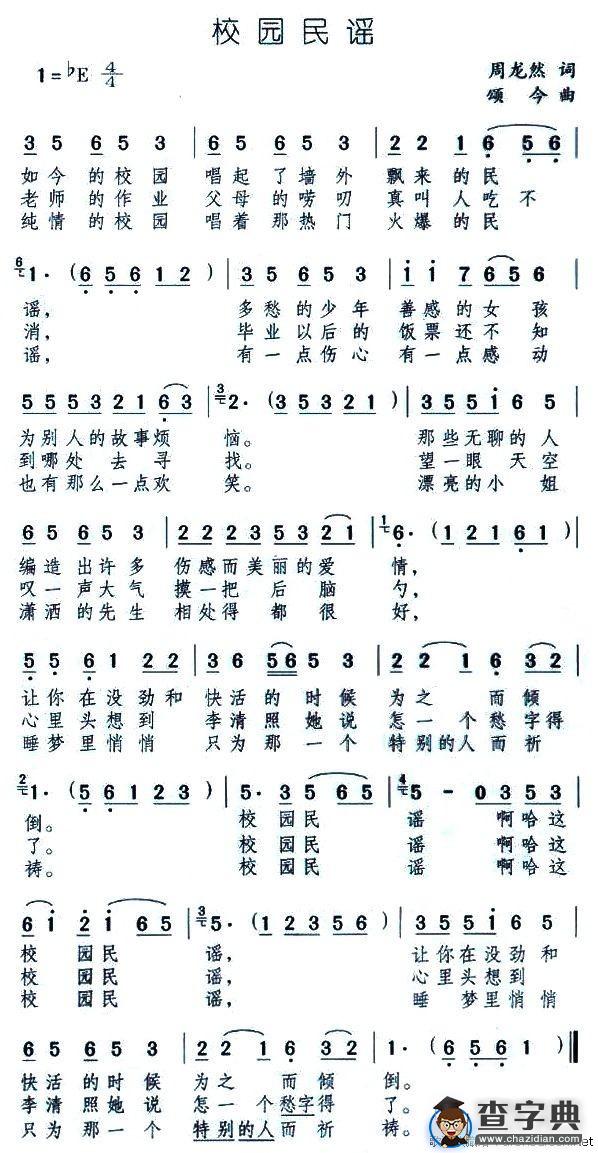 校园民谣
1=♭E 4/4
周龙然 词
颂今 曲
3 5 6 5 3 | 6 5 6 5 3 | 2 2 1 6 5 6 |
如今的校园 唱起了墙外 飘来的民
老师的作业 父母的唠叨 真叫人吃不
纯情的校园 唱着那热门 火爆的民
6 1· (6 5 6 1 2) | 3 5 6 5 3 | i i 7 6 5 6 |
谣, 多愁的少年 善感的女孩
消, 毕业以后的 饭票还不知
谣, 有一点伤心 有一点感动
5 5 5 3 2 1 6 3 | 3 2· (3 5 3 2 1) | 3 5 5 i 6 5 |
为别人的故事烦 恼。 那些无聊的人
到哪处去寻 找。 望一眼天空
也有那么一点欢 笑。 漂亮的小姐
6 5 6 5 3 | 2 2 2 3 5 3 2 1 | 1 6· (1 2 1 6 1) |
编造出许多 伤感而美丽的爱 情,
叹一声大气 摸一把后脑 勺,
潇洒的先生 相处得都很 好,
5 5 6 1 2 2 | 3 6 5 6 5 3 | 2 2 1 6 3 2 |
让你在没劲和 快活的时候 为之而倾
心里头想到 李清照她说 怎一个愁字得
睡梦里悄悄 只为那一个 特别的人而祈
2 1· (5 6 1 2 3) | 5· 3 5 6 5 | 4 5 - 0 3 5 3 |
倒。 校园民 谣 啊哈这
了。 校园民 谣 啊哈这
祷。 校园民 谣 啊哈这
6 i 2 i 6 5 | 3 5· (1 2 3 5 6) | 3 5 5 i 6 5 |
校园民 谣, 让你在没劲和
校园民 谣, 心里头想到
校园民 谣, 睡梦里悄悄
6 5 6 5 3 | 2 2 1 6 3 2 | 1· (6 5 6 1) ‖
快活的时候 为之而倾 倒。
李清照她说 怎一个愁字得 了。
只为那一个 特别的人而祈 祷。
查字典
www.chazidian.com